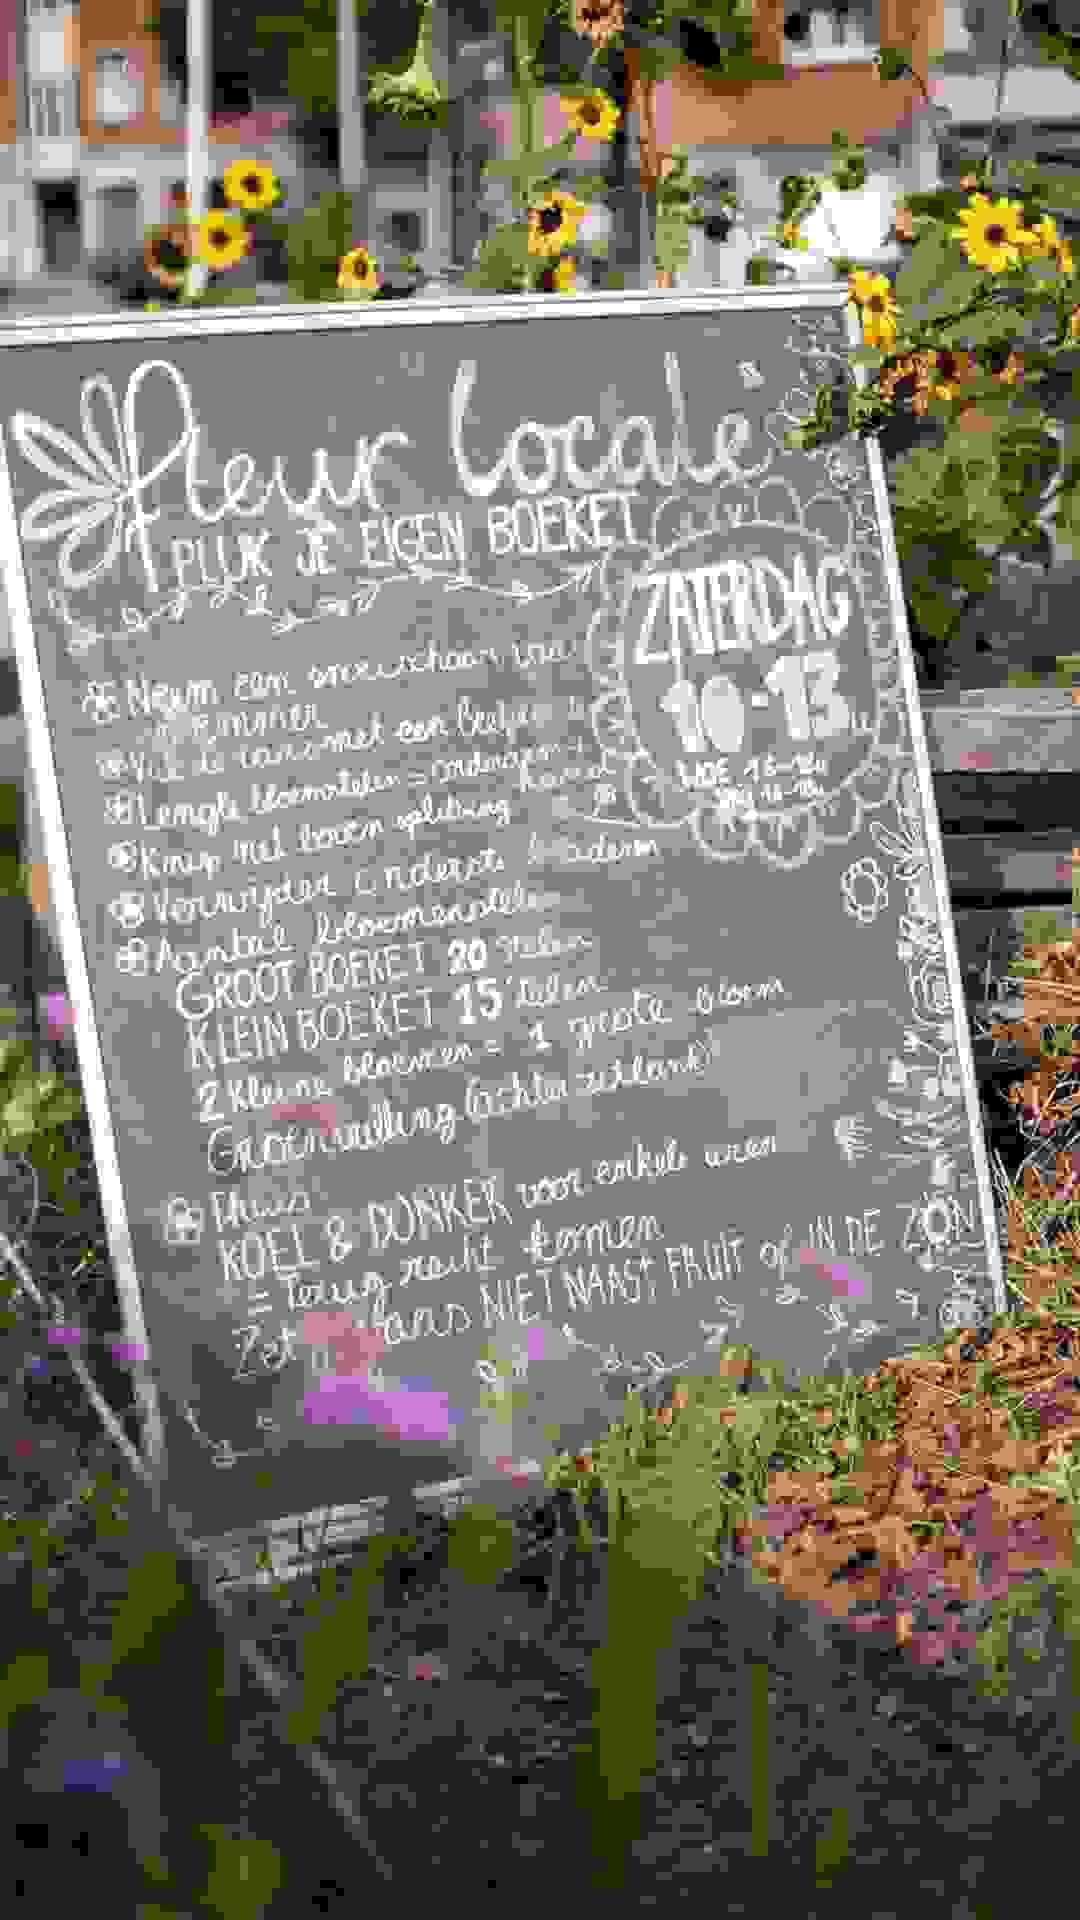 fleur locale
PLUK JE EIGEN BOEKET
ZATERDAG
10-13u
WOE 16-18u
Neem een snoeischaar
emmer
met een
Lengte bloemstelen = onderarm + hand
Knip net boven splitsing
Verwijder onderste bladeren
Aantal bloemenstelen
GROOT BOEKET 20 stelen
KLEIN BOEKET 15 stelen
2 kleine bloemen = 1 grote bloem
Groenvulling (achter zitbank)
Thuis
KOEL & DONKER voor enkele uren
= Terug recht komen
Zet vaas NIET NAAST FRUIT of IN DE ZON